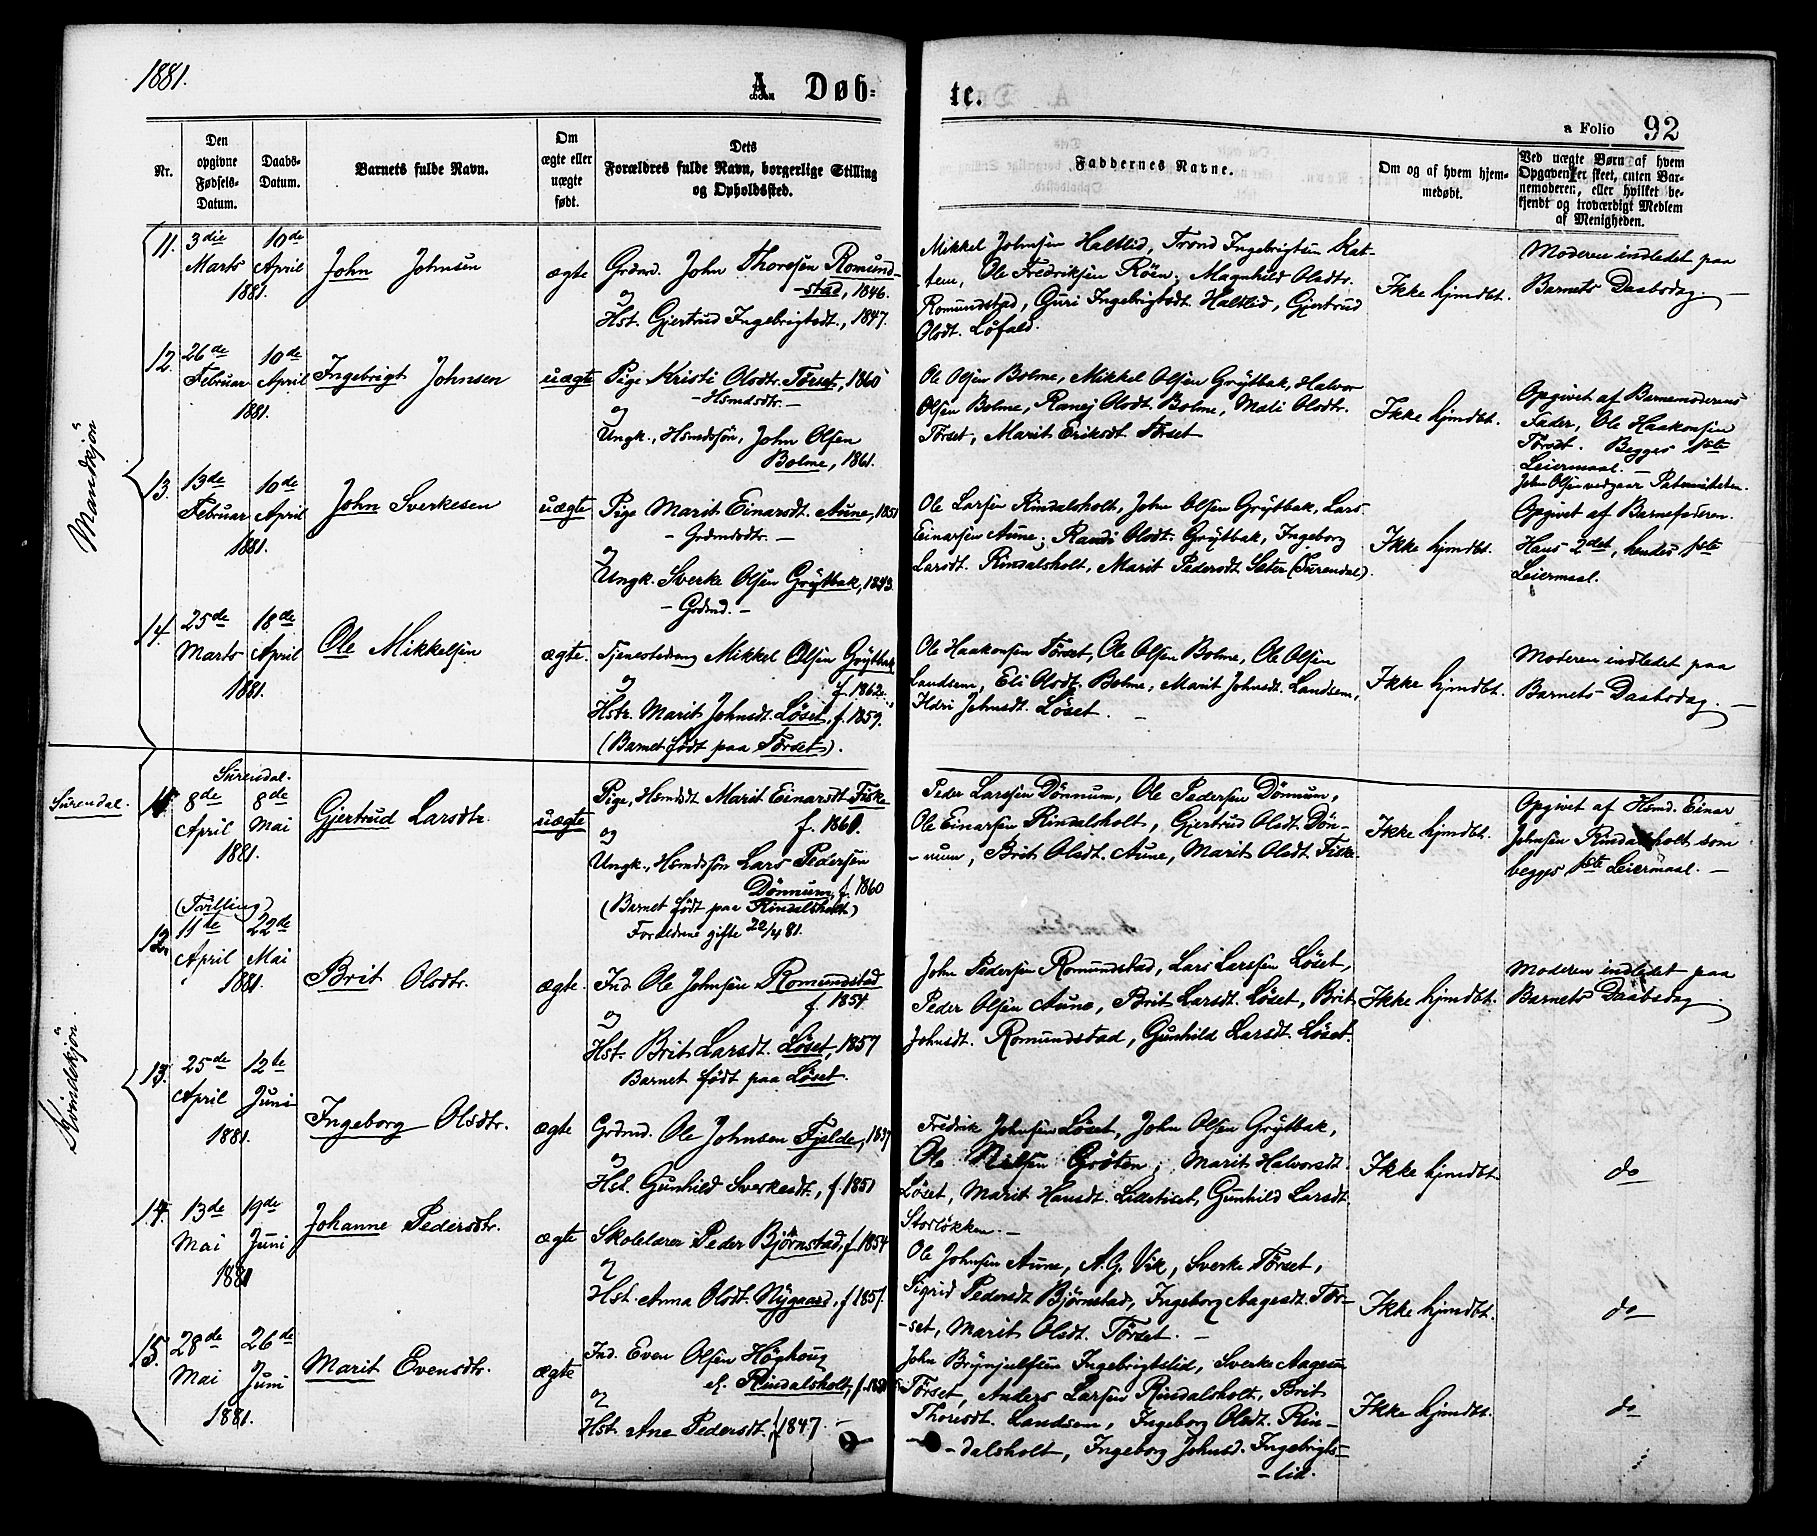 1881.
A. Døb-
te.
a Folio 92
Nr.
Den
opgivne
Fødsels-
Datum.
Daabs-
Datum.
Barnets fulde Navn.
Om
ægte eller
uægte
født.
Dets
Forældres fulde Navn, borgerlige Stilling
og Opholdssted.
Faddernes Navne.
Om og af hvem hjem-
medøbt.
Ved uægte Børn af hvem
Opgaven er skeet, enten Bar-
nemoderen, eller hvilket be-
kjendt og troværdigt Medlem
af Menigheden.
Mandkjön
11.
3die
Marts
1881.
10de
April
John Johnsen
ægte
Grdmd. John Thoresen Romund-
-stad, 1846.
og
Hst. Gjertrud Ingebrigtsdt., 1847.
Mikkel Johnsen Haltlid, Trond Ingebrigtsen Kat-
tem, Ole Fredriksen Röen, Magnhild Olsdtr.
Romundstad, Guri Ingebrigtsdt. Haltlid, Gjertrud
Olsdt. Löfald.
Ikke hjmdbt.
Moderen indledet paa
Barnets Daabsdag. —
12.
26de
Februar
1881.
10de
April
Ingebrigt Johnsen
uægte
Pige Kristi Olsdtr. Törset, 1860
- Hsmdsdtr. -
og
Ungk., Hsmdssön, John Olsen
Bolme, 1861.
Ole Olsen Bolme, Mikkel Olsen Gröjtbak, Halvor
Olsen Bolme, Ranej Olsdt. Bolme, Mali Olsdtr.
Törset, Marit Eriksdt. Törset
Ikke hjmdbt.
Opgivet af Barnemoderens
Fader, Ole Haakonsen
Törset. Begges 1ste
Leiermaal. —
John Olsen vedgaar Paterniteten.
13.
13de
Februar
1881.
10de
April
John Sverkesen
uægte
Pige Marit Einarsdt. Aune, 1851
- Grdmdsdtr. -
og
Ungk. Sverke Olsen Gröjtbak, 1843.
- Grdmd. -
Ole Larsen Rindalsholt, John Olsen Gröjtbak, Lars
Einarsen Aune, Randi Olsdt. Gröjtbak, Ingeborg
Larsdt. Rindalsholt, Marit Pedersdt. Sæter (Surendal).
Ikke hjmdbt.
Opgivet af Barnefaderen.
Hans 2det, hendes 1ste
Leiermaal.
14.
25de
Marts
1881.
18de
April
Ole Mikkelsen
ægte.
Tjenestedreng Mikkel Olsen Gröjtbak
f. 1862.
og
Hstr. Marit Johnsdt. Löset, f. 1859.
(Barnet födt paa Törset).
Ole Haakonsen Törset, Ole Olsen Bolme, Ole Olsen
Landsem, Eli Olsdt. Bolme, Marit Johnsdt. Landsem,
Johnsdt. Löset. —
Ikke hjmdbt.
Moderen indledet paa
Barnets Daabsdag. —
Surendal.
Kvindekjön.
11.
Surendal.
8de
April
1881.
8de
Mai
Gjertrud Larsdtr.
uægte
Pige, Hsmdsdt Marit Einarsdt Fiske
f. 1860.
og
Ungk., Hsmdssön Lars Pedersen
Dönnum, f. 1860
(Barnet födt paa Rindalsholt)
Forældrene gifte 22/4 81.
Peder Larssen Dönnum, Ole Pedersen Dönnum,
Ole Einarsen Rindalsholt, Gjertrud Olsdt. Dön-
-num, Brit Olsdt. Aune, Marit Olsdt. Fiske.
Ikke hjmdbt.
Opgivet af Hsmd. Einar
Johnsen Rindalsholt som
begges 1ste Leiermaal. —
12.
(Tvilling)
11te
April
1881.
22de
Mai
Brit Olsdtr.
ægte.
Ind. Ole Johnsen Romundstad
f. 1854.
og
Hst. Brit Larsdt. Löset, 1857
Barnet födt paa Löset.
John Pedersen Romundstad, Lars Larssen Löset,
Peder Olsen Aune, Brit Larsdt. Löset, Brit
Johnsdt. Romundstad, Gunhild Larsdt. Löset.
Ikke hjmdbt.
Moderen indledet paa
Barnets Daabsdag
13.
25de
April
1881.
12te
Juni
Ingeborg Olsdtr.
ægte
Grdmd. Ole Johnsen Fjelde, 1837
og
Hst. Gunhild Sverkesdt., f. 1851
Fredrik Johnsen Löset, John Olsen Gröjtbak,
Ole Nielsen Gröten, Marit Halvorsdt.
Löset, Marit Hansdt. Lilletiset, Gunhild Larsdt.
Storlökken. —
Ikke hjmdbt
do
14.
13de
Mai
1881
19de
Juni
Johanne Pedersdtr.
ægte
Skolelærer Peder Bjørnstad, f. 1854
og
Hst. Anna Olsdt. Nygaard, f. 1857.
Ole Johnsen Aune, A. G. Vik, Sverke Törset,
Sigrid Pedersdt Bjørnstad, Ingeborg Aagesdt. Tör-
-set, Marit Olsdt. Törset. —
Ikke hjmdbt.
do
15.
28de
Mai
1881.
26de
Juni
Marit Evensdtr.
ægte
Ind. Even Olsen Höghoug
el. Rindalsholt,
og
Hst. Ane Pedersdt., f 1847. —
John Brynjulfsen Ingebrigtslid, Sverke Aagesen
Törset, Anders Larsen Rindalsholt, Brit
Thoresdt. Landsem, Ingeborg Olsdt. Rin-
-dalsholt, Ingeborg Johnsd. Ingebrigts-
-lid.
Ikke hjmdbt.
do